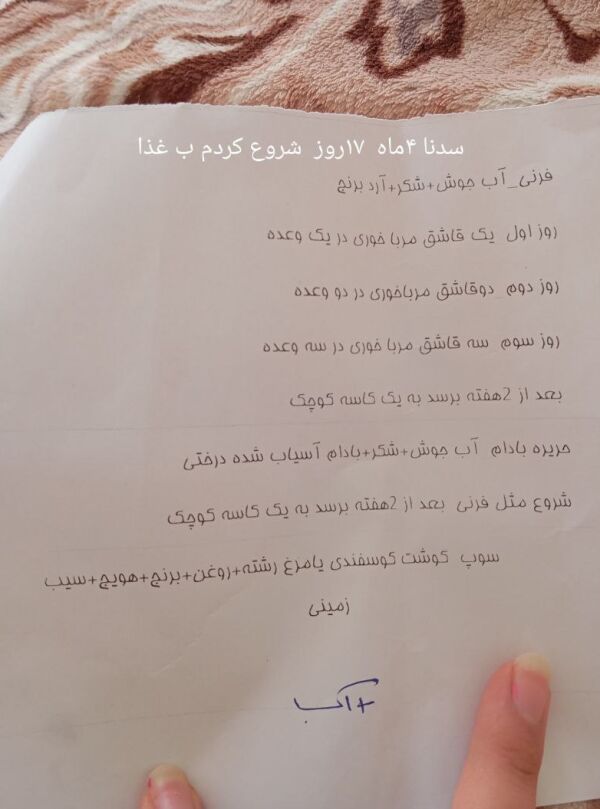 سدنا ۴ماه ۱۷روز شروع کردم ب غذا
فرنی_آب جوش+شکر+آرد برنج
روز اول یک قاشق مربا خوری در یک وعده
روز دوم دوقاشق مرباخوری در دو وعده
روز سوم سه قاشق مربا خوری در سه وعده
بعد از 2هفته برسد به یک کاسه کوچک
حریره بادام آب جوش+شکر+بادام آسیاب شده درختی
شروع مثل فرنی بعد از 2هفته برسد به یک کاسه کوچک
سوپ گوشت گوسفندی یامرغ رشته+روغن+برنج+هویج+سیب
زمینی
+آب